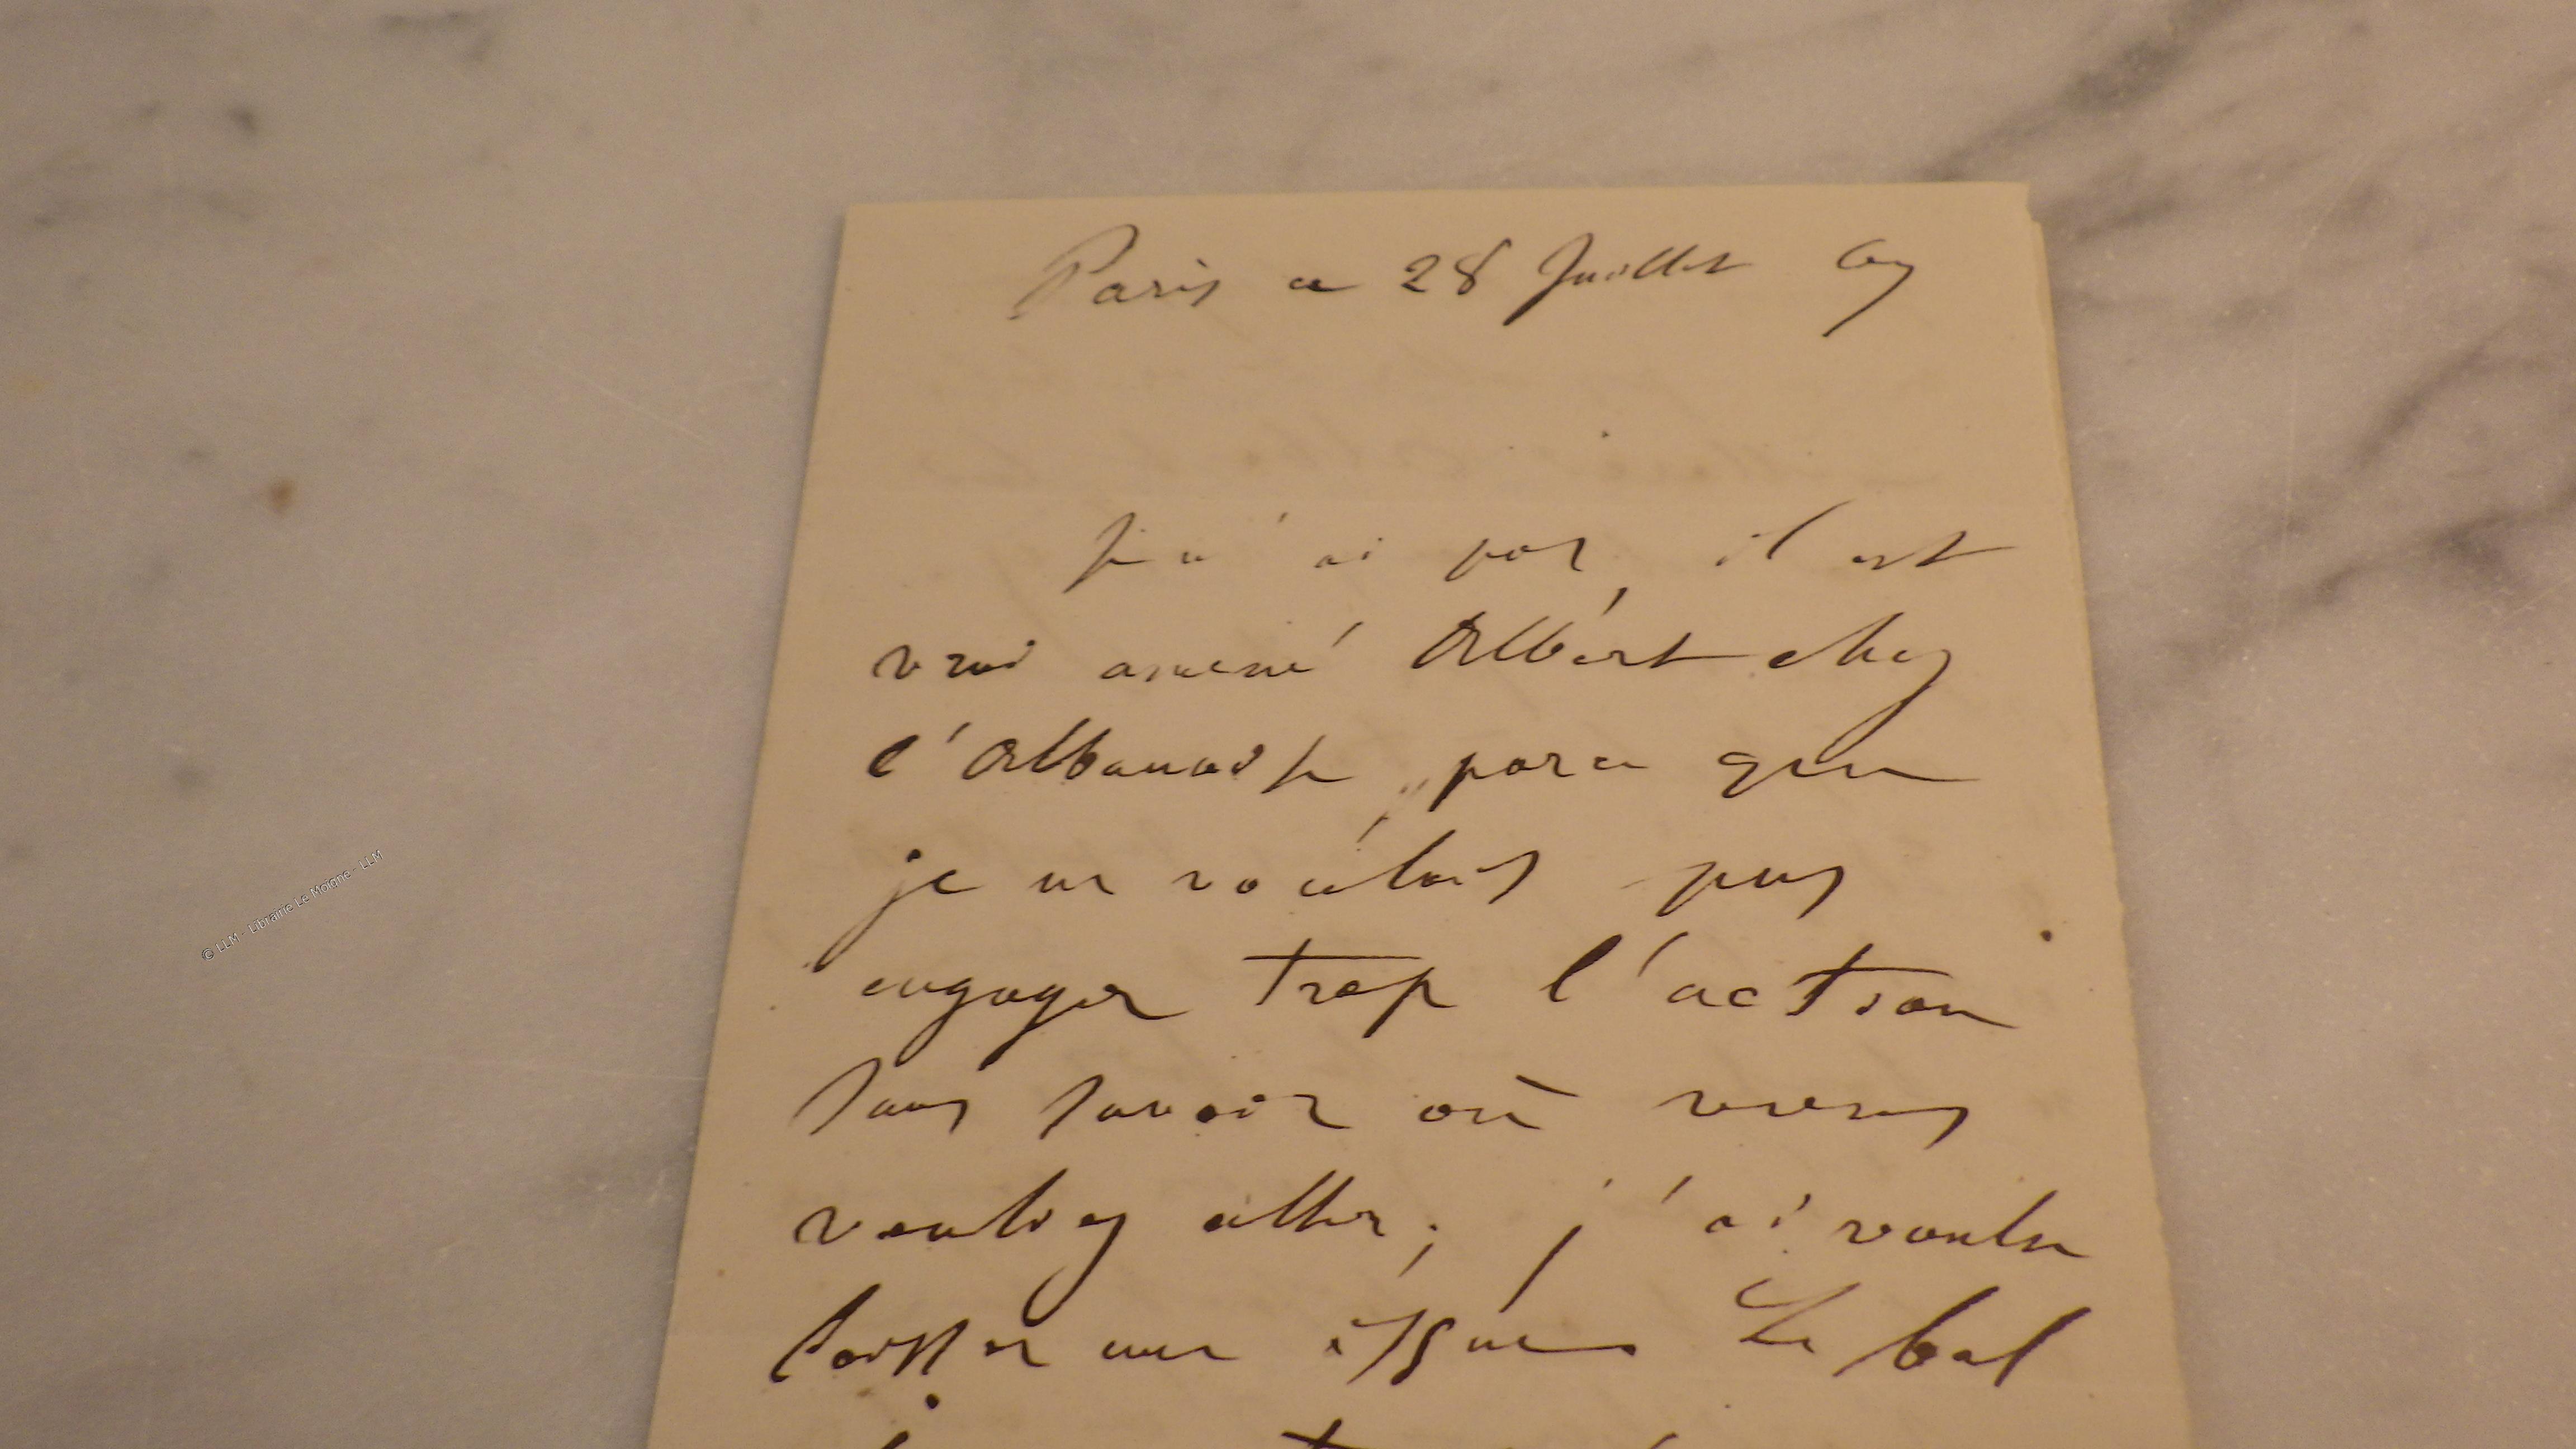 Paris ce 28 Juillet 67
Je n'ai pas, il est
vrai amené Albert chez
l'Albanaise, parce que
je ne voulais pas
engager trop l'action
sans savoir où vous
vouliez aller; j'ai voulu
laisser une issue. Le bal
© LLM - Librairie Le Moigne - LLM